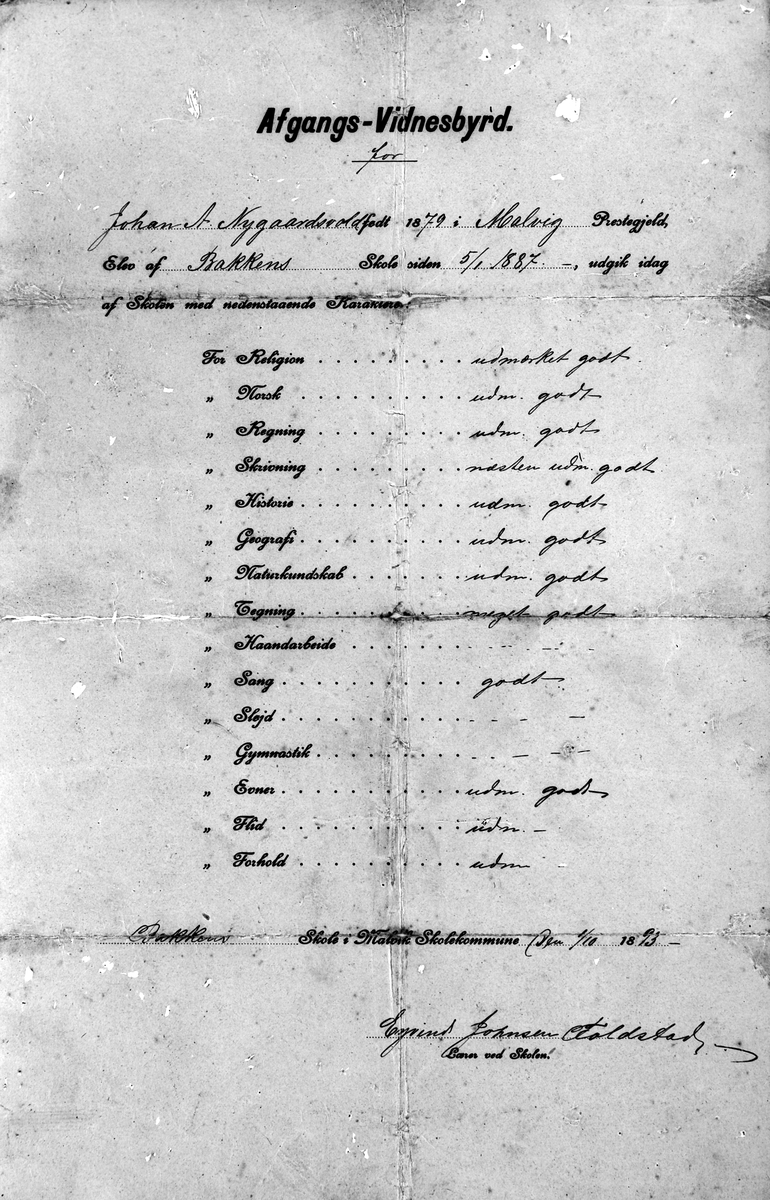 Afgangs-Vidnesbyrd.
for
Johan A Nygaardsvold født 1879 i Malvig Prestegjeld,
Elev af Bakkens Skole siden 5/1 1887. –, udgik idag
af Skolen med nedenstaaende Karakterer:
For Religion . . . . . . . . . udmærket godt.
„ Norsk . . . . . . . . . . udm. godt
„ Regning . . . . . . . . . udm. godt
„ Skrivning . . . . . . . . . næsten udm. godt
„ Historie . . . . . . . . . . udm. godt
„ Geografi . . . . . . . . . . udm. godt
„ Naturkundskab . . . . . . . udm. godt
„ Tegning . . . . . . . . . . meget godt
„ Haandarbeide . . . . . . . - - -- -
„ Sang . . . . . . . . . . . godt
„ Sløjd . . . . . . . . . . . - - - –
„ Gymnastik . . . . . . . . . - - – - –
„ Evner . . . . . . . . . . . udm. godt
„ Flid . . . . . . . . . . . udm. –
„ Forhold . . . . . . . . . . udm
Bakkens Skole i Malvik Skolekommune Den 1/10 1893 –
Eyvind Johnsen Foldstad
Lærer ved Skolen.